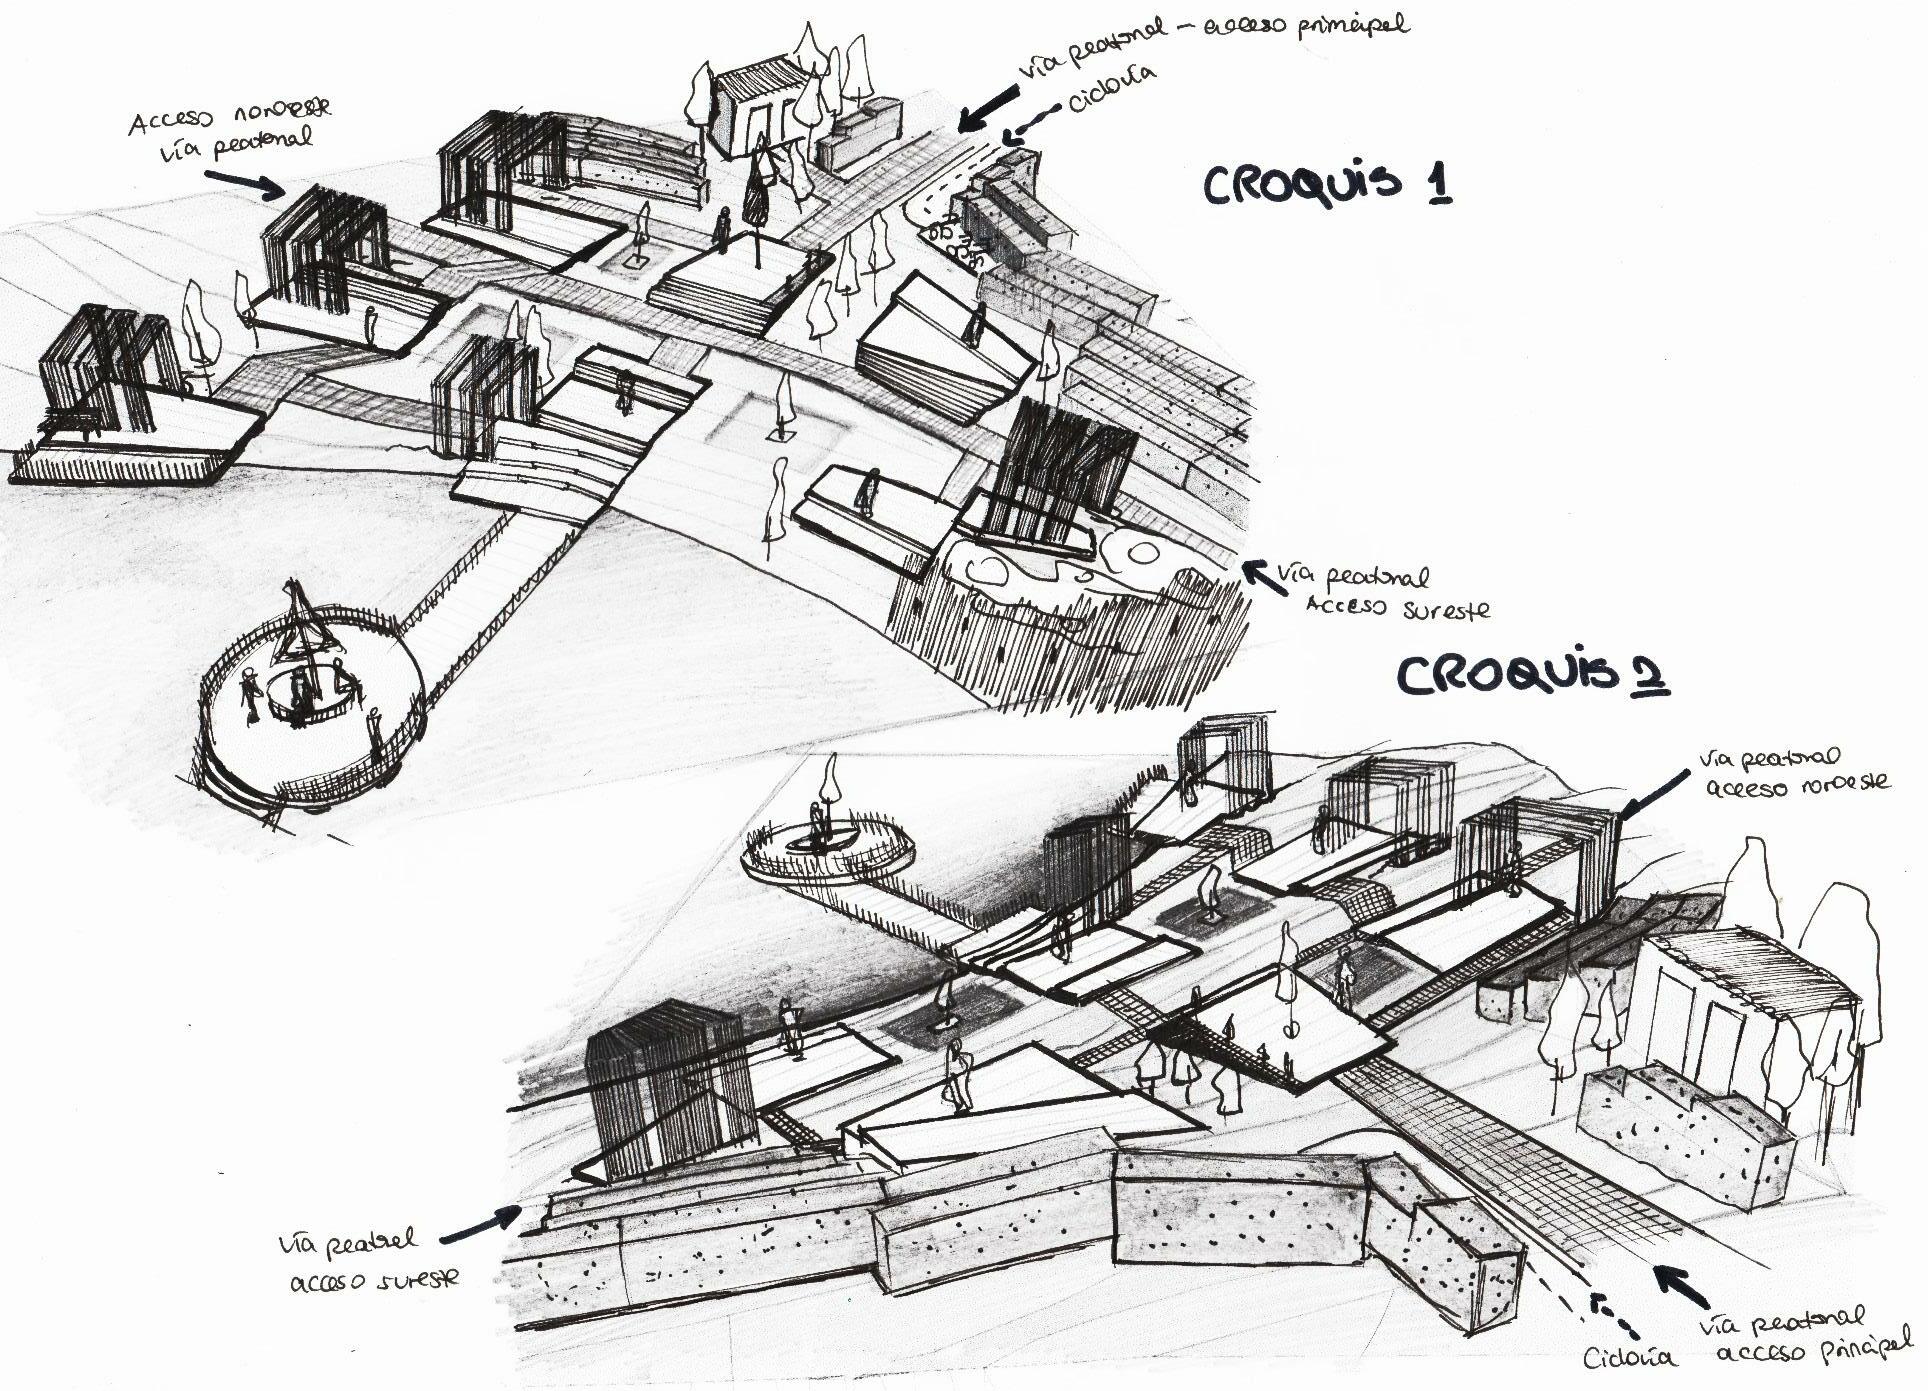 vía peatonal - acceso principal
ciclovía
Acceso noroeste
vía peatonal
CROQUIS 1
vía peatonal
Acceso sureste
CROQUIS 2
vía peatonal
acceso noroeste
vía peatonal
acceso sureste
vía peatonal
acceso principal
Ciclovía